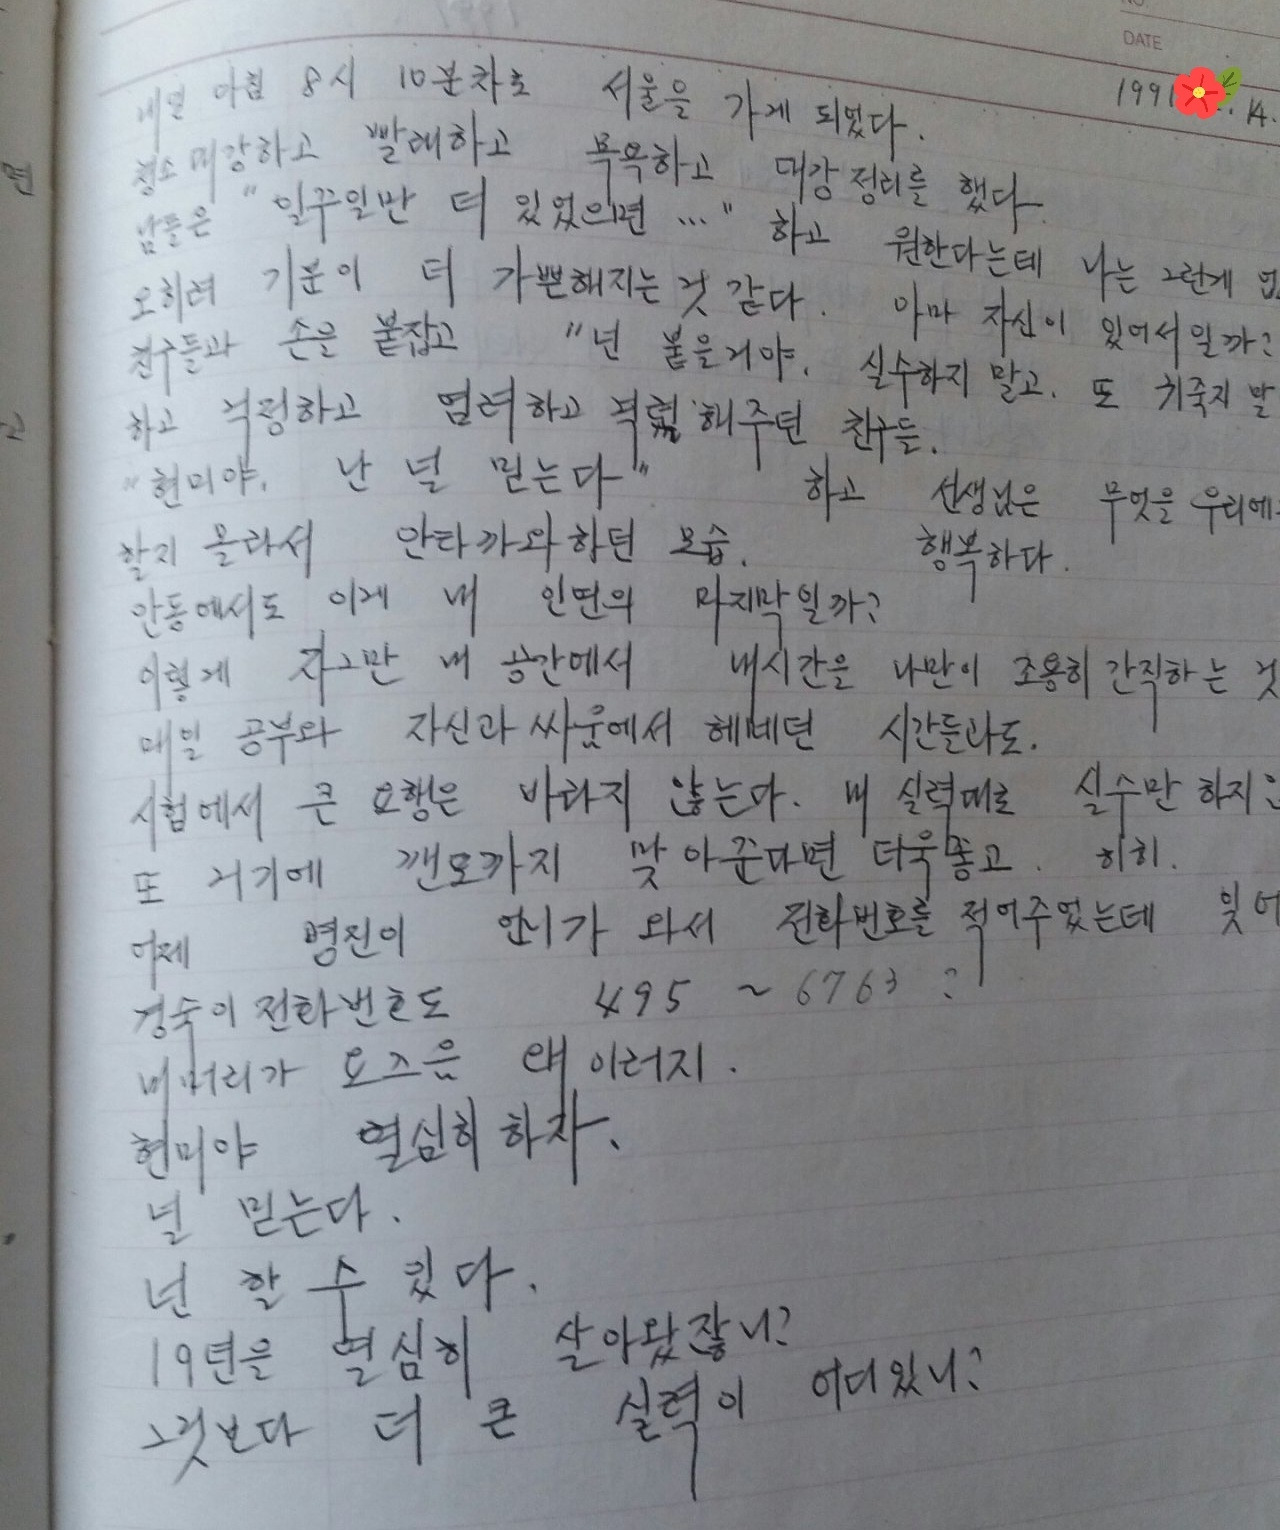 DATE
1991 14.
내일 아침 8시 10분차로 서울을 가게 되었다.
청소 대강하고 빨래하고 목욕하고 대강 정리를 했다.
남들은 "일주일만 더 있었으면 ..." 하고 원한다는데 나는 그런게
오히려 기분이 더 가쁜해지는 것 같다. 아마 자신이 있어서일까?
친구들과 손을 붙잡고 "넌 붙을거야. 실수하지 말고. 또 귀죽지 말
하고 걱정하고 염려하고 격렬해주던 친구들.
"현미야. 난 널 믿는다" 하고 선생님은 무엇을 우리에
할지 몰라서 안타까와하던 모습. 행복하다.
안동에서도 이게 내 인연의 마지막일까?
이렇게 자그만 내 공간에서 내시간을 나만이 조용히 간직하는 것
매일 공부와 자신과 싸움에서 헤메던 시간들과도.
시험에서 큰 요행은 바라지 않는다. 내 실력대로 실수만 하지
또 거기에 깬모까지 맞아준다면 더욱좋고. 히히.
어제 명진이 언니가 와서 전화번호를 적어주었는데 잊어
경숙이 전화번호도 495 ~ 6763 ?
내머리가 요즈음 왜 이러지.
현미야 열심히 하자.
널 믿는다.
넌 할 수 있다.
19년을 열심히 살아왔잖니?
그것보다 더 큰 실력이 어디있니?
면
고